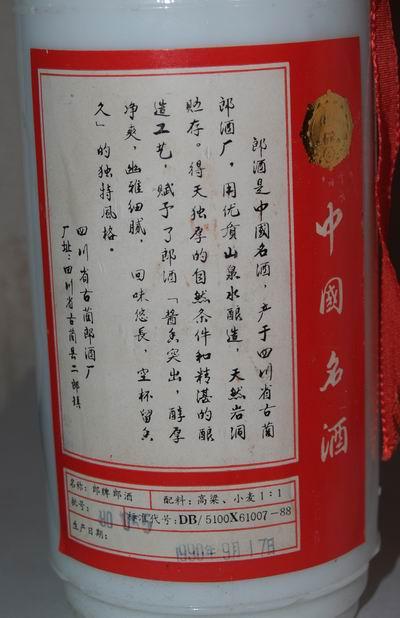 郎酒是中國名酒，产于四川省古藺
郎酒厂。用优质山泉水酿造，天然岩洞
贮存。得天独厚的自然条件和精湛的酿
造工艺，赋予了郎酒「酱香突出，醇厚
净爽，幽雅细腻，回味悠長，空杯留香
久」的独特風格。
四川省古藺郎酒厂
厂址：四川省古藺县二郎镇
中國名酒
名称：郎牌郎酒
配料：高梁、小麦1:1
批号：
标准代号：DB/5100X61007-88
生产日期：
1990年9月17日